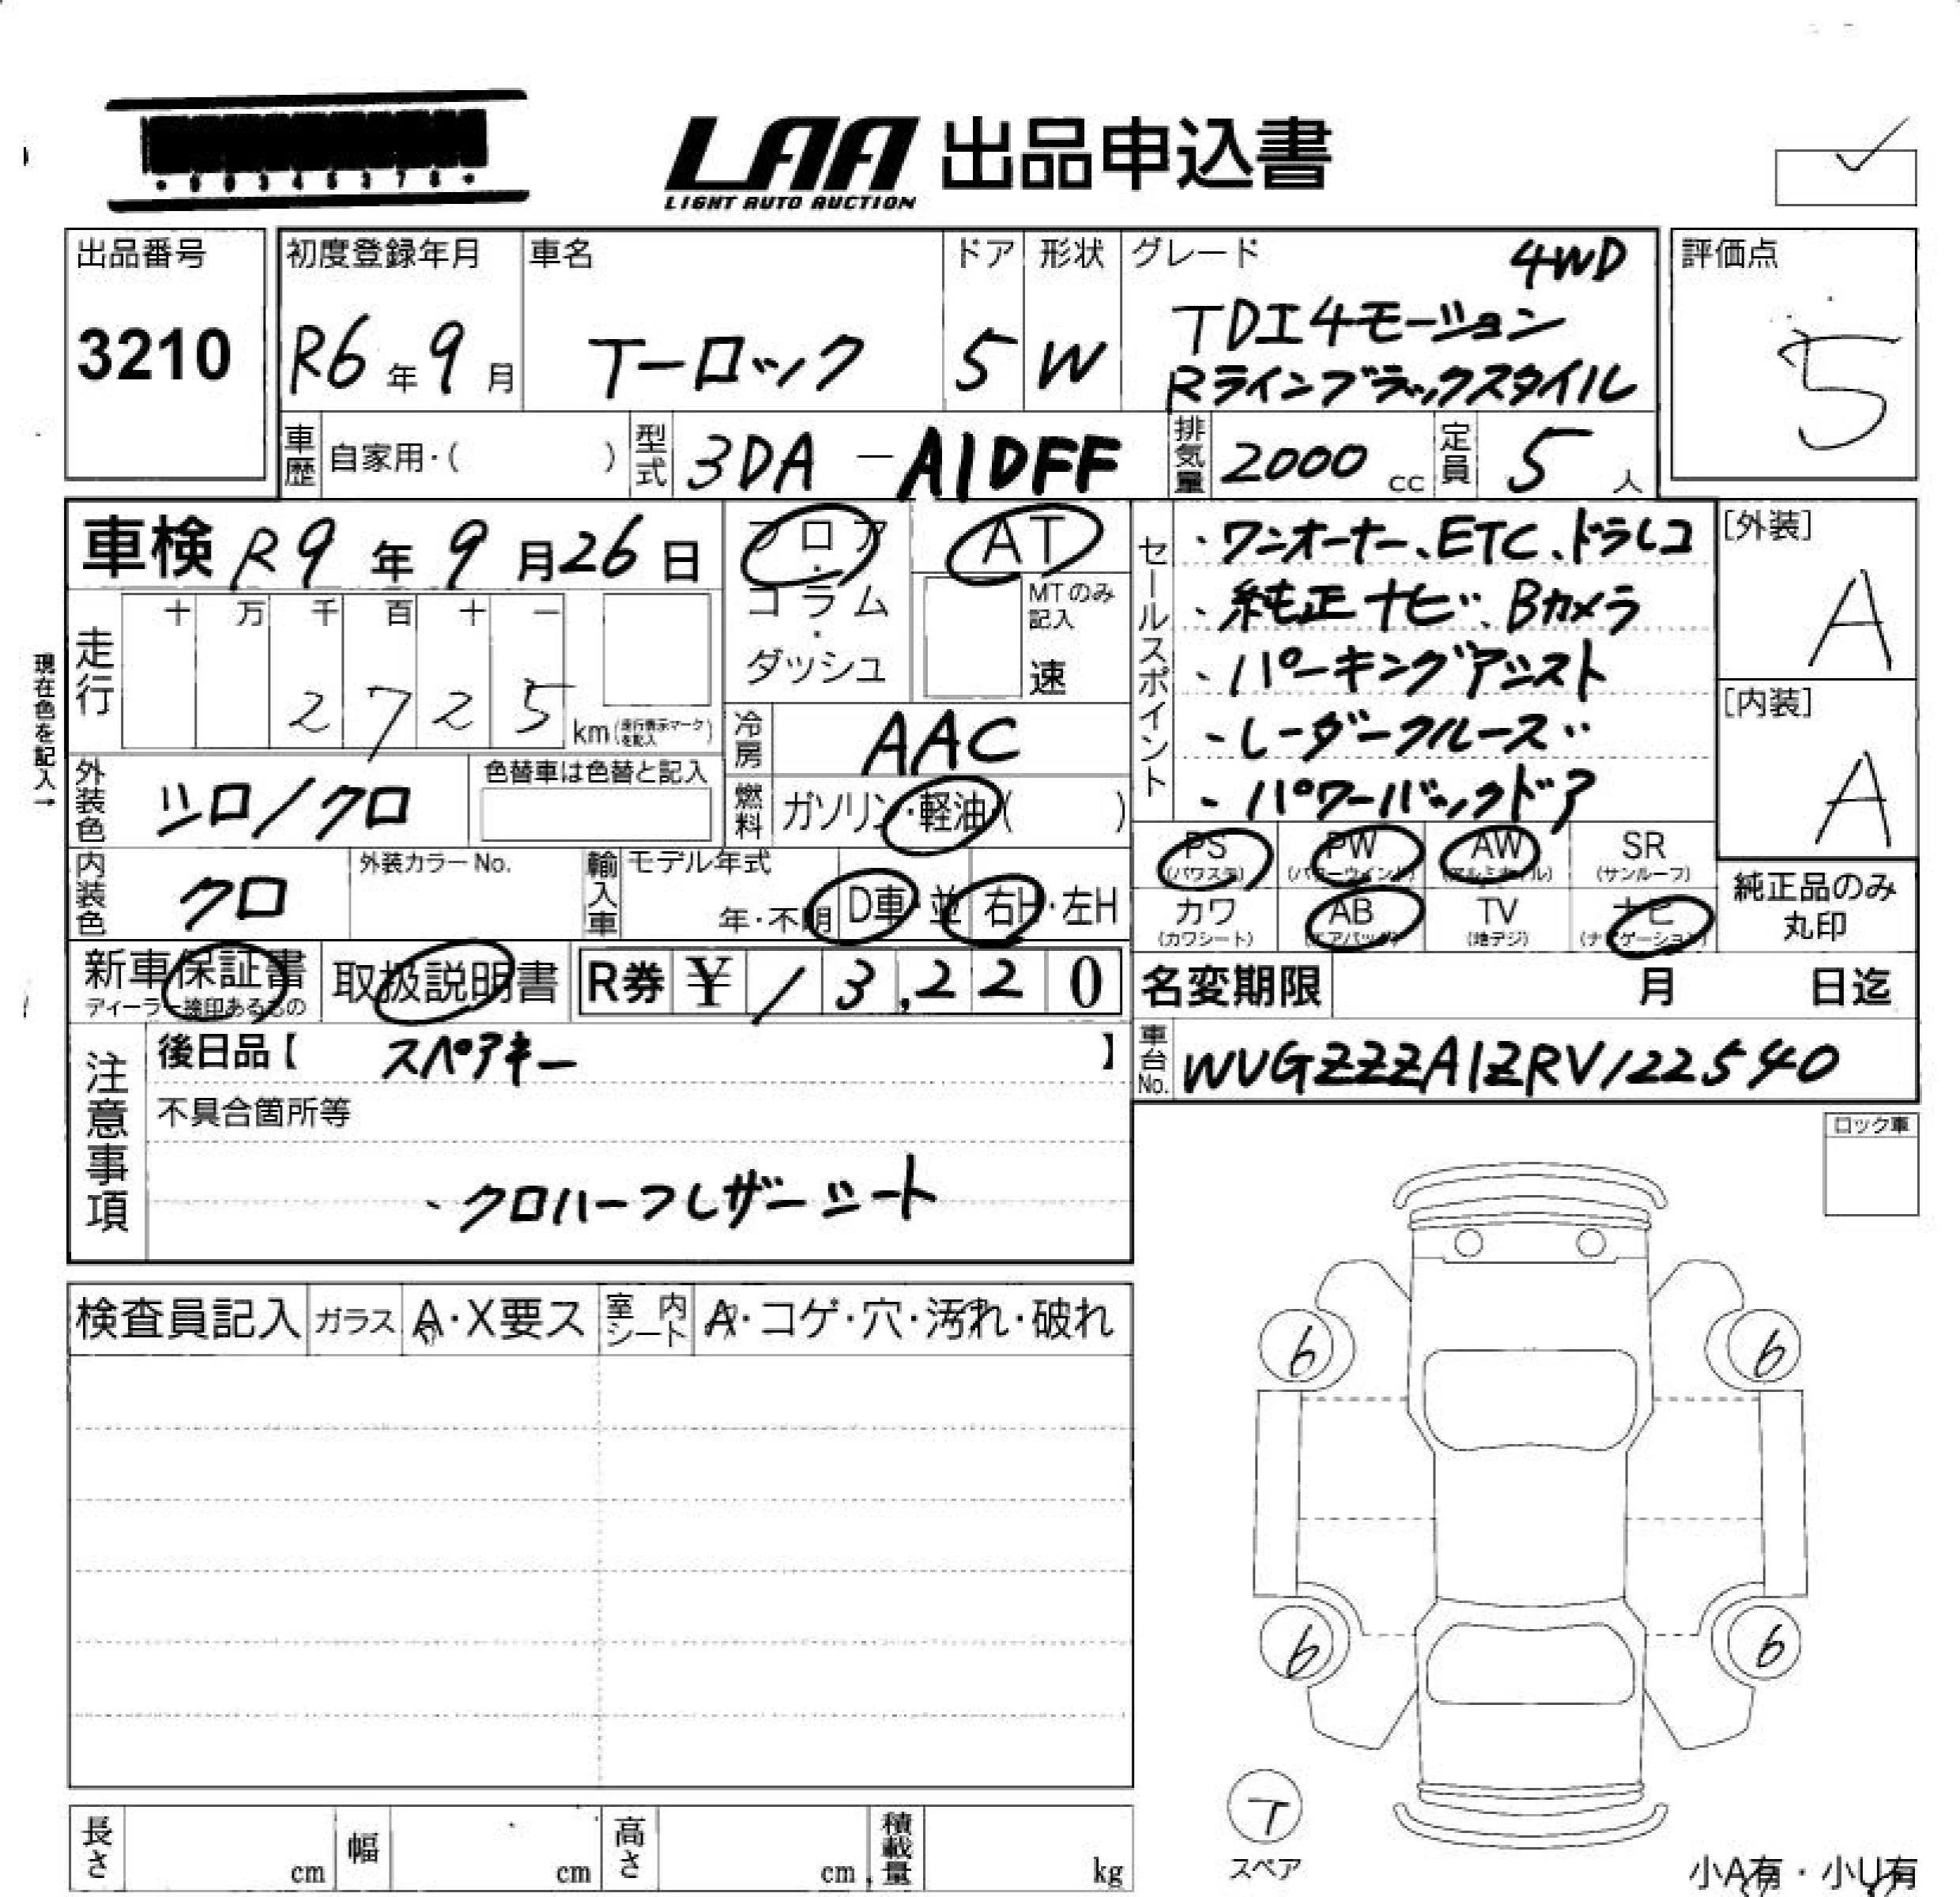 LAA 出品申込書
LIGHT AUTO AUCTION
出品番号
3210
初度登録年月
R6年9月
車名
T-ロック
ドア
5
形状
W
グレード
4WD
TDI4モーション
Rラインブラックスタイル
評価点
5
車歴
自家用・( )
型式
3DA-A1DFF
排気量
2000cc
定員
5人
車検 R9年9月26日
フロア・コラム・ダッシュ
AT
MTのみ記入
速
走行
十 万 千 百 十 一
2 7 2 5 km
(走行表示マークを記入)
現在色を記入→
冷房
AAC
外装色
シロ/クロ
色替車は色替と記入
燃料
ガソリン・軽油( )
内装色
クロ
外装カラーNo.
輸入車
モデル年式
年・不明
D車・並
右H・左H
セールスポイント
・ワンオーナー、ETC、ドラレコ
・純正ナビ、Bカメラ
・パーキングアシスト
・レーダークルーズ
・パワーバックドア
[外装]
A
[内装]
A
PS (パワステ)
PW (パワーウインド)
AW (アルミホイル)
SR (サンルーフ)
カワ (カワシート)
AB (エアバッグ)
TV (地デジ)
ナビ (ナビゲーション)
純正品のみ
丸印
新車保証書
ディーラー捺印あるもの
取扱説明書
R券 ¥13,220
名変期限 月 日迄
車台No.
WVGZZZA1ZRV122540
注意事項
後日品【 スペアキー 】
不具合箇所等
・クロハーフレザーシート
ロック車
検査員記入
ガラス A・X要ス
室内シート A・コゲ・穴・汚れ・破れ
6
6
6
6
T
スペア
長さ cm
幅 cm
高さ cm
積載量 kg
小A有・小U有